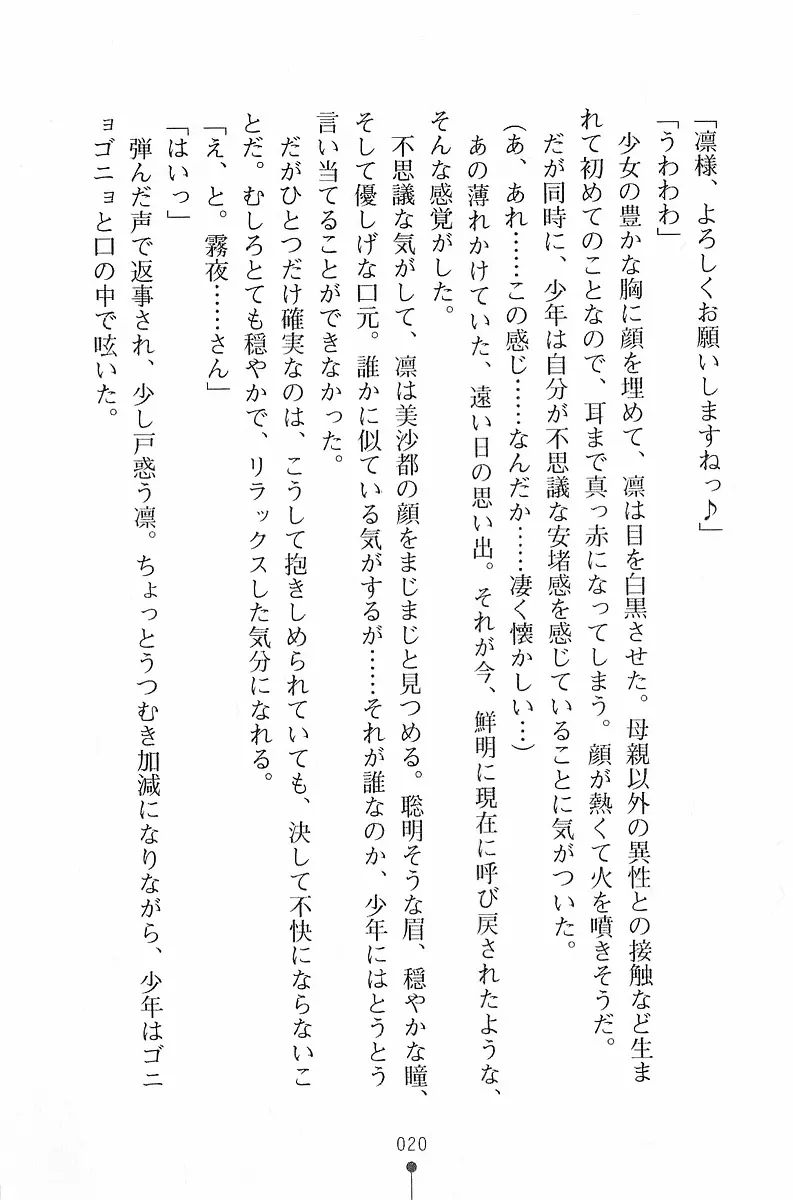 「凛様、よろしくお願いしますねっ♪」
「うわわわ」
　少女の豊かな胸に顔を埋めて、凛は目を白黒させた。母親以外の異性との接触など生ま
れて初めてのことなので、耳まで真っ赤になってしまう。顔が熱くて火を噴きそうだ。
　だが同時に、少年は自分が不思議な安堵感を感じていることに気がついた。
（あ、あれ……この感じ……なんだか……凄く懐かしい…）
　あの薄れかけていた、遠い日の思い出。それが今、鮮明に現在に呼び戻されたような、
そんな感覚がした。
　不思議な気がして、凛は美沙都の顔をまじまじと見つめる。聡明そうな眉、穏やかな瞳、
そして優しげな口元。誰かに似ている気がするが……それが誰なのか、少年にはとうとう
言い当てることができなかった。
　だがひとつだけ確実なのは、こうして抱きしめられていても、決して不快にならないこ
とだ。むしろとても穏やかで、リラックスした気分になれる。
「え、と。霧夜……さん」
「はいっ」
　弾んだ声で返事され、少し戸惑う凛。ちょっとうつむき加減になりながら、少年はゴニ
ョゴニョと口の中で呟いた。
020